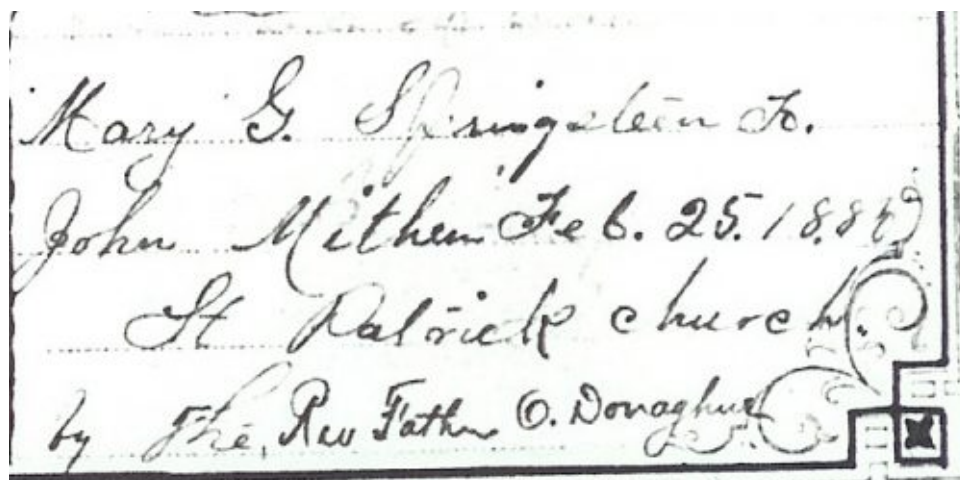 Mary G. Springsteen To.
John Mithen Feb. 25. 188
St Patrick church.
by The Rev Father O. Donaghue